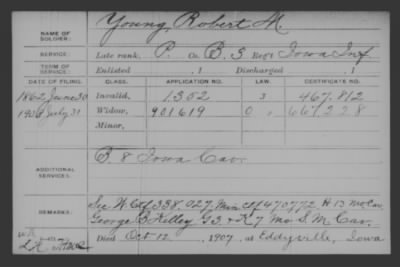 NAME OF SOLDIER: Young, Robert M.
SERVICE: Late rank, P. Co. B, 3 Reg't Iowa Inf
TERM OF SERVICE: Enlisted , 1 Discharged , 1
DATE OF FILING. CLASS. APPLICATION NO. LAW. CERTIFICATE NO.
1862 June 30 Invalid, 1.302 3 467.812
July 31 Widow, 901619 0 661228
Minor,
ADDITIONAL SERVICES: 8 Iowa Cav.
REMARKS: See W. Ctf 338.027, Min Ctf 470772. H 13 Mo Cav.
George Kelley G 3 & K 7 Mo S. M. Cav.
Died Oct 12, 1907, at Eddyville, Iowa